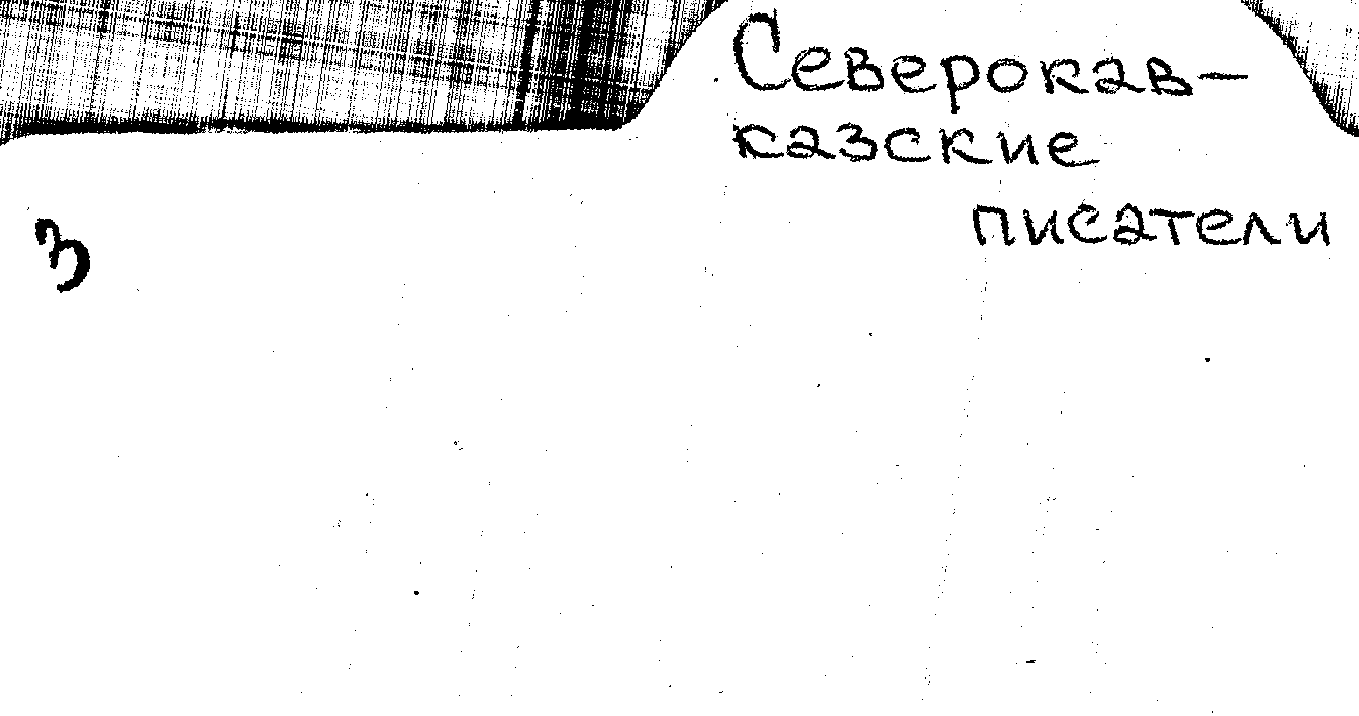 Северокав-
казские
писатели
З